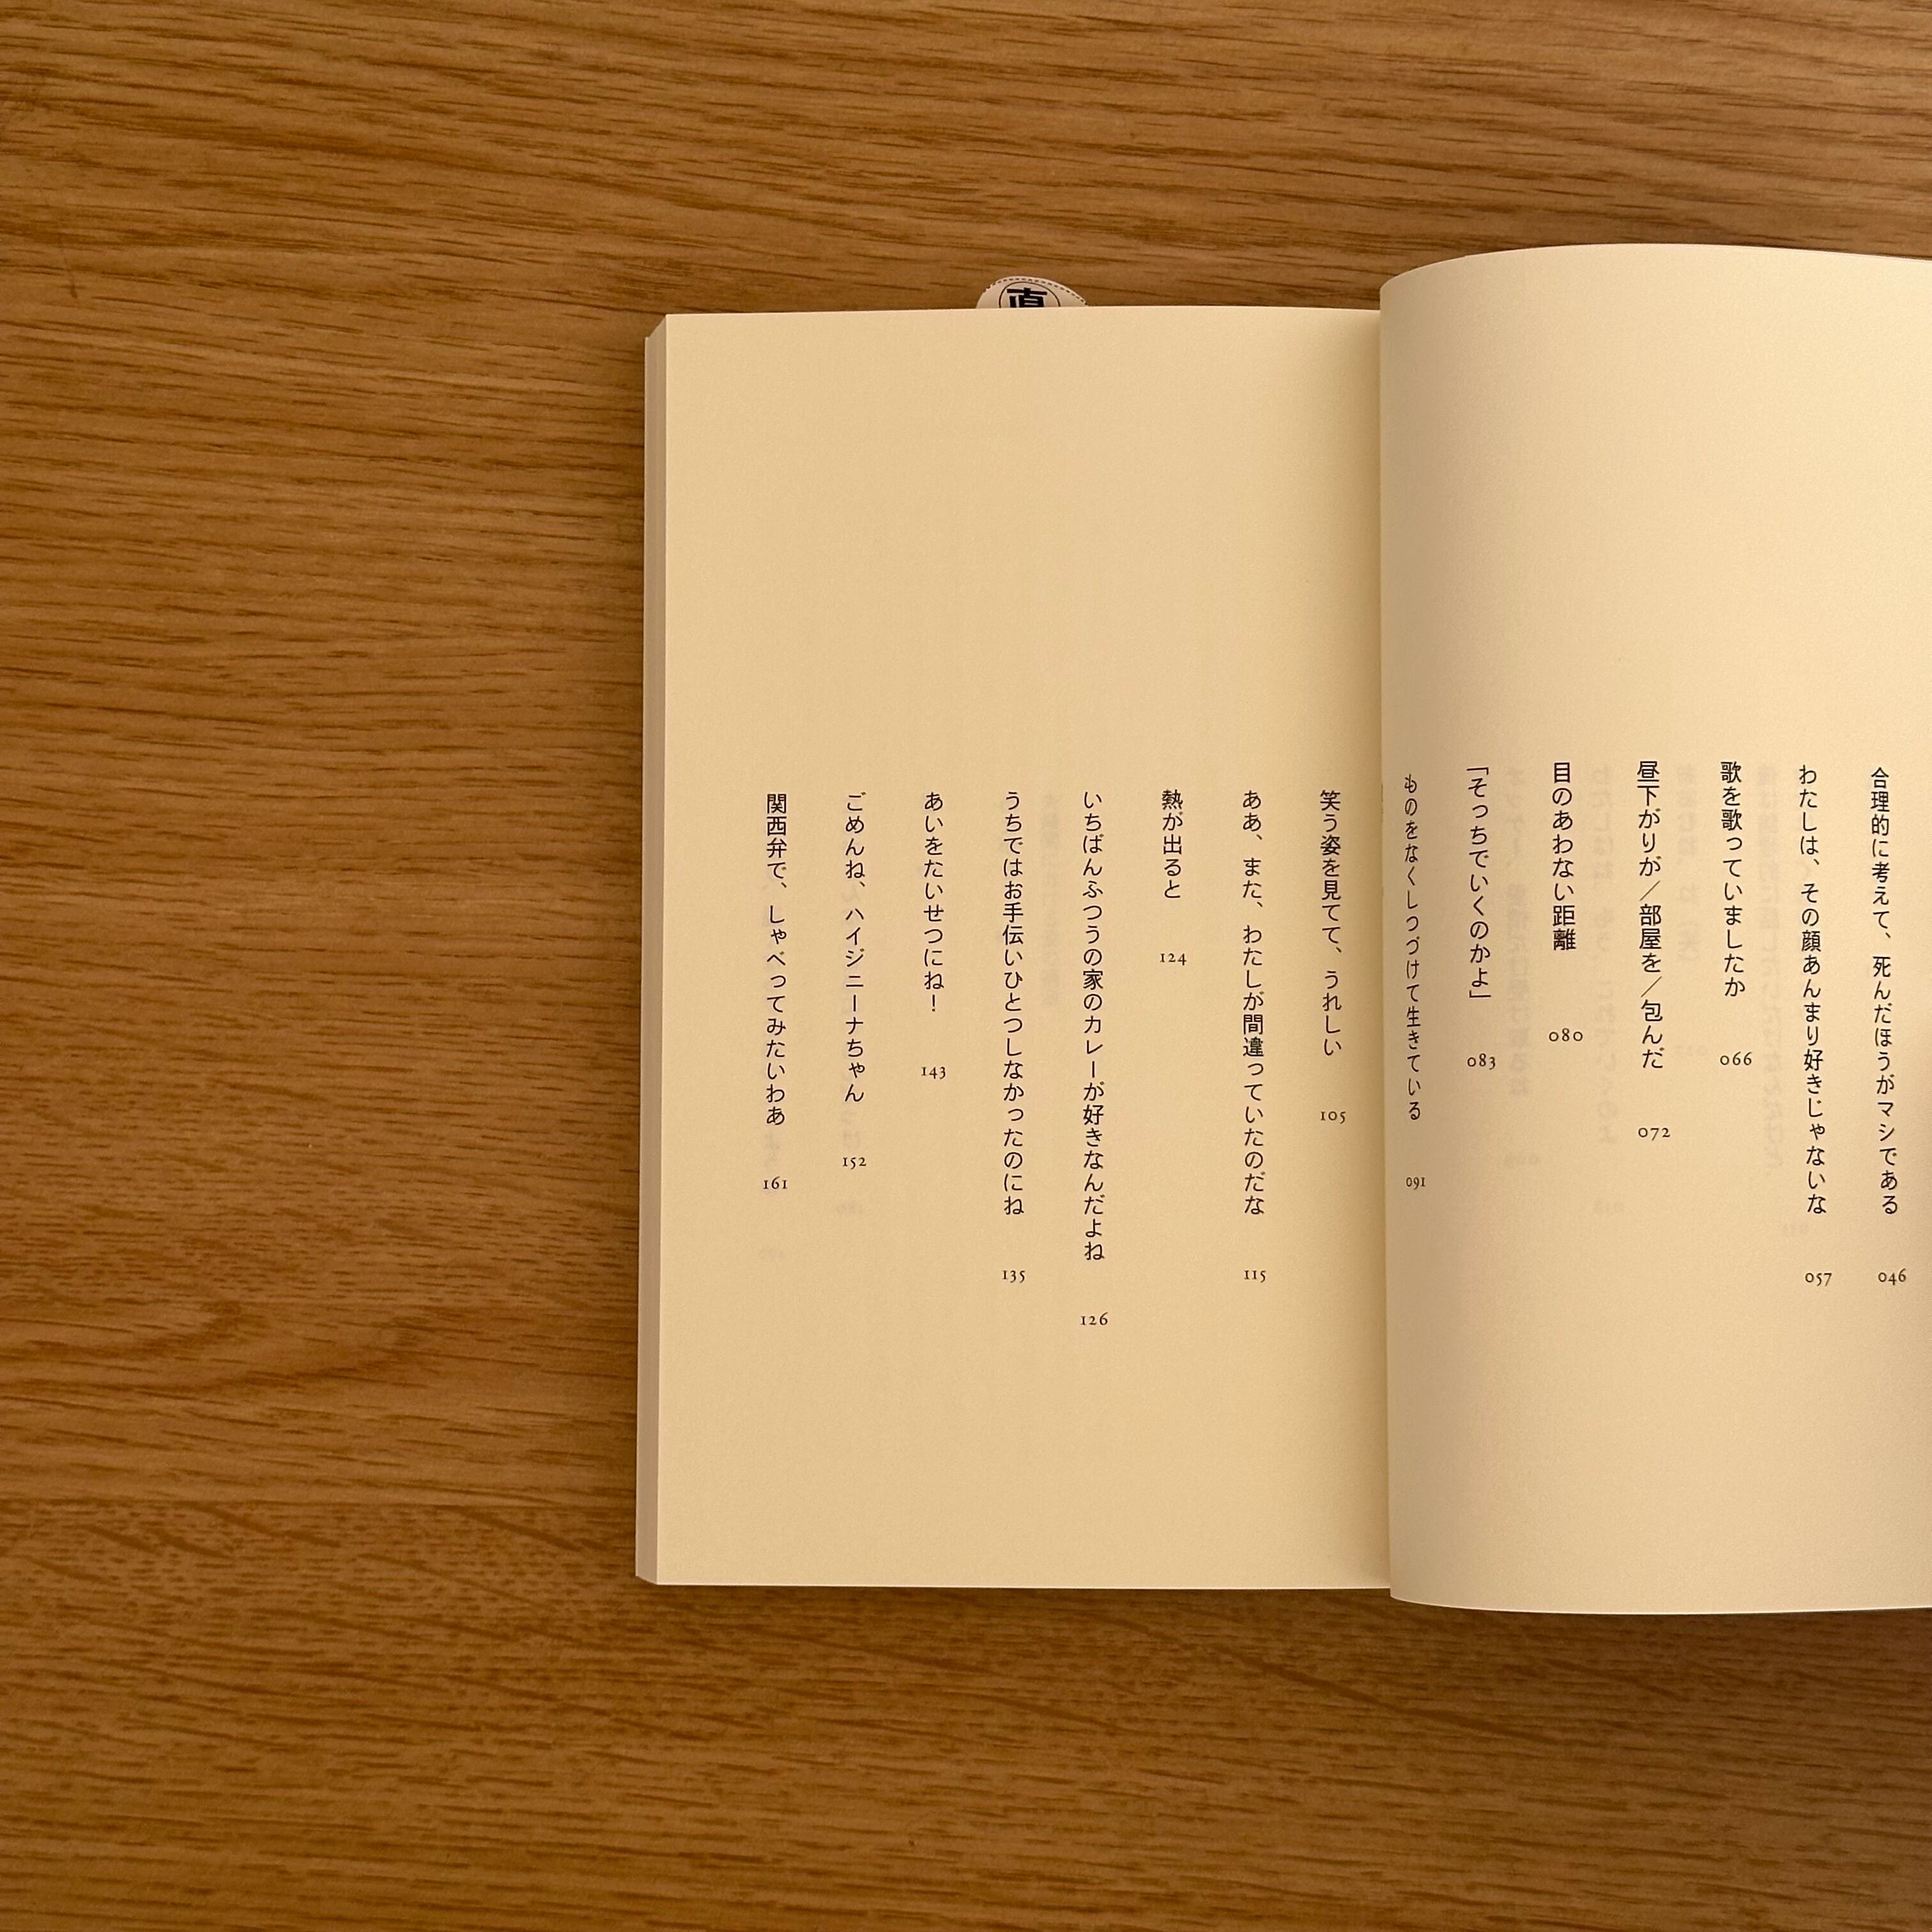 合理的に考えて、死んだほうがマシである 046
わたしは、その顔あんまり好きじゃないな 057
歌を歌っていましたか 066
昼下がりが／部屋を／包んだ 072
目のあわない距離 080
「そっちでいくのかよ」 083
ものをなくしつづけて生きている 091
笑う姿を見てて、うれしい 105
ああ、また、わたしが間違っていたのだな 115
熱が出ると 124
いちばんふつうの家のカレーが好きなんだよね 126
うちではお手伝いひとつしなかったのにね 135
あいをたいせつにね！ 143
ごめんね、ハイジニーナちゃん 152
関西弁で、しゃべってみたいわあ 161